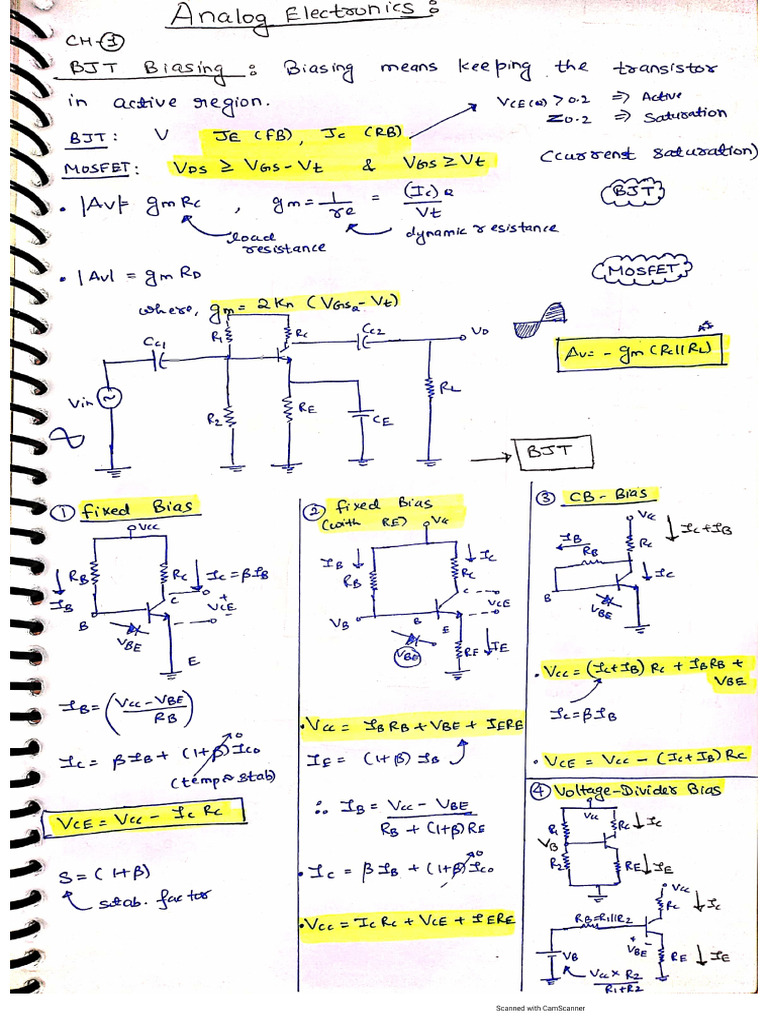 Analog Electronics :
CH-①
BJT Biasing : Biasing means keeping the transistor
in active region.
VCE(Q) > 0.2 => Active
≤0.2 => Saturation
BJT : V JE (FB), JC (RB)
(current saturation)
MOSFET : VDS ≥ VGS-Vt & VGS ≥ Vt
BJT
• |Av| = gm RC , gm = 1/re = (IC)Q/Vt
load resistance
dynamic resistance
MOSFET
• |Av| = gm RD
where, gm = 2Kn (VGSQ - Vt)
Av = - gm (RC || RL)
CC1
R1
RC
CC2
VO
Vin
R2
RE
CE
RL
BJT
① fixed Bias
VCC
RB
IB
RC
IC = βIB
C
+
VCE
-
B
VBE
E
IB = (VCC - VBE / RB)
IC = βIB + (1+β) ICO
0
(temp stab)
VCE = VCC - IC RC
S = (1+β)
stab. factor
② fixed Bias
(with RE)
VCC
IB
RB
IC
RC
C
VCE
VB
B
E
VBE
RE
IE
• VCC = IBRB + VBE + IERE
IE = (1+β) IB
∴ IB = VCC - VBE / RB + (1+β)RE
• IC = βIB + (1+β) ICO
0
• VCC = IC RC + VCE + IERE
③ CB - Bias
VCC
IC+IB
IB
RB
RC
IC
B
VBE
• VCC = (IC+IB) RC + IBRB +
VBE
IC = βIB
• VCE = VCC - (IC+IB) RC
④ Voltage-Divider Bias
VCC
R1
RC
IC
VB
R2
RE
IE
VCC
RC
IC
RB=R1||R2
+
VBE
-
VB
RE
IE
VCC × R2
R1+R2
Scanned with CamScanner